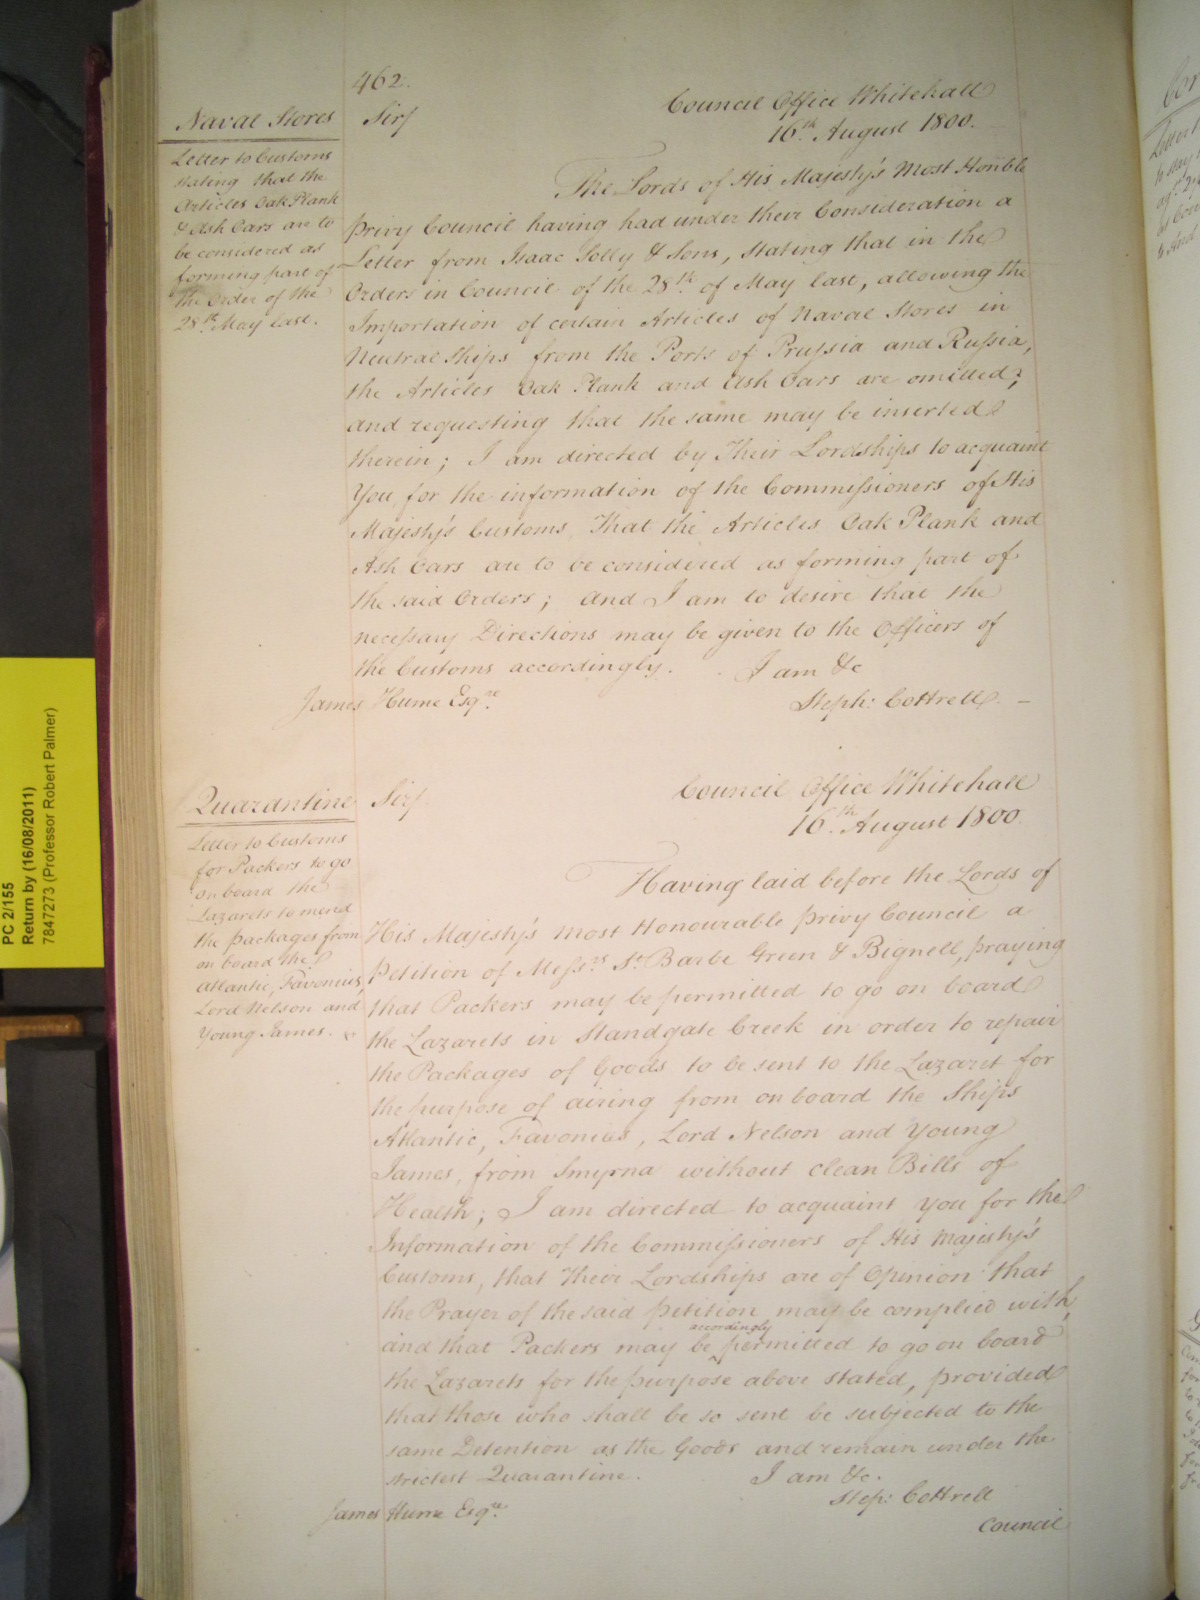 462.
Naval Stores
Letter to Customs
stating that the
Articles Oak Plank
& Ash Oars are to
be considered as
forming part of
the Order of the
28th. May last.
Sir/
Council Office Whitehall
16th. August 1800.
The Lords of His Majesty's Most Honble
Privy Council having had under their Consideration a
Letter from Isaac Solly & Sons, stating that in the
Orders in Council of the 28th. of May last, allowing the
Importation of certain Articles of Naval Stores in
Neutral Ships from the Ports of Prussia and Russia,
the Articles Oak Plank and Ash Oars are omitted;
and requesting that the same may be inserted
therein; I am directed by Their Lordships to acquaint
You, for the information of the Commissioners of His
Majesty's Customs, That the Articles Oak Plank and
Ash Oars are to be considered as forming part of
the said Orders; and I am to desire that the
necessary Directions may be given to the Officers of
the Customs accordingly. I am &c
James Hume Esqre. Steph: Cottrell. —
Quarantine
Letter to Customs
for Packers to go
on board the
Lazarets to mend
the packages from
on board the
Atlantic, Favonius,
Lord Nelson and
Young James.
Sir/
Council Office Whitehall
16th. August 1800.
Having laid before the Lords of
His Majesty's Most Honourable Privy Council a
Petition of Messrs St. Barbe Green & Bignell, praying
that Packers may be permitted to go on board
the Lazarets in Standgate Creek in order to repair
the Packages of Goods to be sent to the Lazaret for
the purpose of airing from on board the Ships
Atlantic, Favonius, Lord Nelson and Young
James, from Smyrna without clean Bills of
Health; I am directed to acquaint You for the
Information of the Commissioners of His Majesty's
Customs, that Their Lordships are of Opinion that
the Prayer of the said Petition may be complied with,
accordingly
and that Packers may be permitted to go on board
the Lazarets for the purpose above stated, provided
that those who shall be so sent be subjected to the
same Detention as the Goods and remain under the
strictest Quarantine. I am &c.
James Hume Esqre. Step: Cottrell
Council
PC 2/155
Return by (16/08/2011)
7847273 (Professor Robert Palmer)